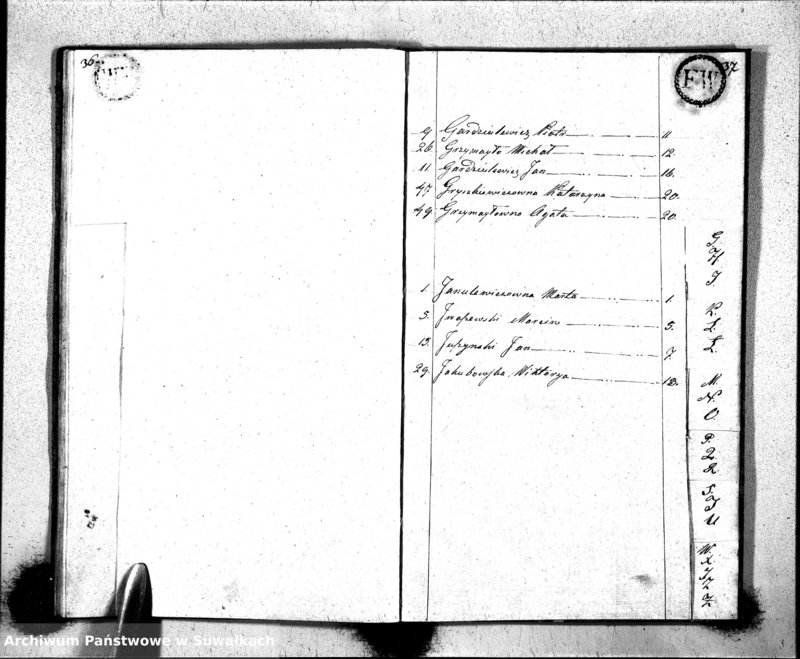 36
37
FW
9 Gardziulewicz Piotr 11
26 Grzymayło Michał 12.
11. Gardziulewicz Jan 16.
47. Gryszkiewiczowna Katarzyna 20.
49. Grzymayłowna Agata 20.
1. Janulewiczowna Marta 1.
5. Marcin 5.
13. Juszynski Jan 7.
29. Jakubowska Wiktorya 12.
G H I
K. L. Ł.
M. N. O.
P. Q. R.
S T U
W.
Archiwum Państwowe w Suwałkach